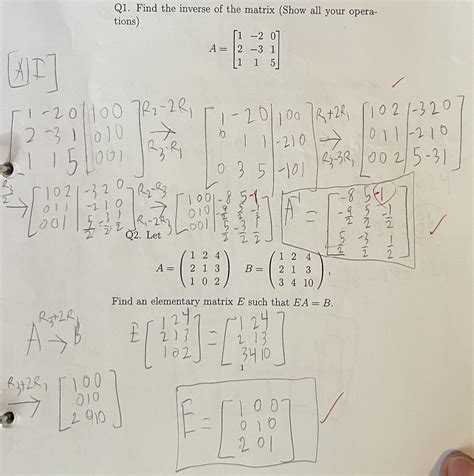 Q1. Find the inverse of the matrix (Show all your opera-
tions)
A = [1 -2 0
2 -3 1
1 1 5]
[A|I]
[1 -2 0 | 1 0 0
2 -3 1 | 0 1 0
1 1 5 | 0 0 1]
R2-2R1
→
R3-R1
[1 -2 0 | 1 0 0
0 1 1 | -2 1 0
0 3 5 | -1 0 1]
R1+2R2
→
R3-3R2
[1 0 2 | -3 2 0
0 1 1 | -2 1 0
0 0 2 | 5 -3 1]
R3/2
→
[1 0 2 | -3 2 0
0 1 1 | -2 1 0
0 0 1 | 5/2 -3/2 1/2]
R2-R3
→
R1-2R3
[1 0 0 | -8 5 -1
0 1 0 | -9/2 5/2 -1/2
0 0 1 | 5/2 -3/2 1/2]
A^-1 = [-8 5 -1
-9/2 5/2 -1/2
5/2 -3/2 1/2]
Q2. Let
A = (1 2 4
2 1 3
1 0 2)
B = (1 2 4
2 1 3
3 4 10),
Find an elementary matrix E such that EA = B.
A R3+2R1 → B
E [1 2 4
2 1 3
1 0 2] = [1 2 4
2 1 3
3 4 10]
R3+2R1 → [1 0 0
0 1 0
2 0 1]
E = [1 0 0
0 1 0
2 0 1]